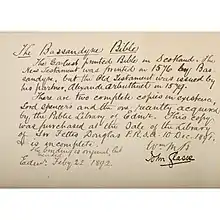 The Bassandyne Bible
The Earliest printed Bible in Scotland. The
New Testament was printed in 1576 by Bas-
sandyne, but the Old Testament was issued by
his partner, Alexander Arbuthnot in 1579.
There are two complete copies in existence,
Lord Spencer's and the one recently acquired
by the Bible Library of Edinr. This copy
was purchased at the Sale of the Library
of Sir Peter F.R.S.S. 10 Dec. 1885
& is incomplete.
The binding is original, but
Edinr. Feby 22. 1892.
John Glasse